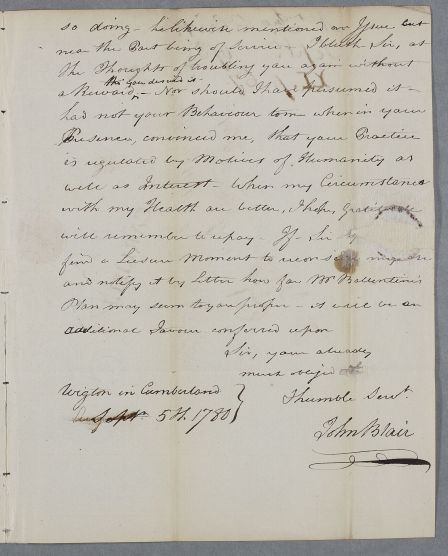 so doing - he likewise mentioned an Issue cut
near the Part being of Service - I blush Sir, at
the Thoughts of troubling you again without
tho' you desired it -
a Reward, - Nor should I have presumed it -
had not your Behaviour to me when in your
Presence, convinced me, that your Practice
is regulated by Motives of Humanity as
well as Interest - When my Circumstances
with my Health are better, I hope, Gratitude
will remember to repay - If Sir
find a Leisure Moment to
and notify it by Letter how far Mr Ballentine's
Plan may seem to you proper - it will be an
additional Favour conferred upon
Sir, your already
much oblig'd
Wigton in Cumberland
Humble Servt.
Sept. 5th. 1780
John Blair